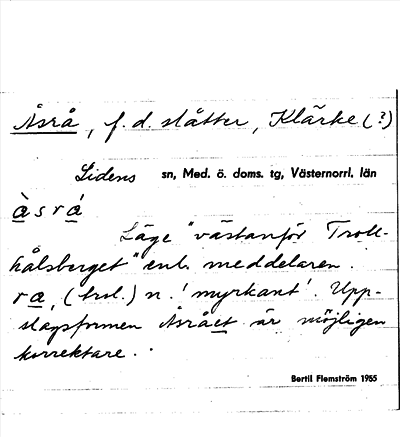 Åsrå, f.d. slåtter, Klärke (?)
Lidens sn, Med. ö. doms. tg, Västernorrl. län
à s r á
Läge "västanför Troll-
hålsberget" enl. meddelaren.
ra, (trol.) n. 'myrkant'. Upp-
slagsformen Åsrået är möjligen
korrektare.
Bertil Flemström 1955